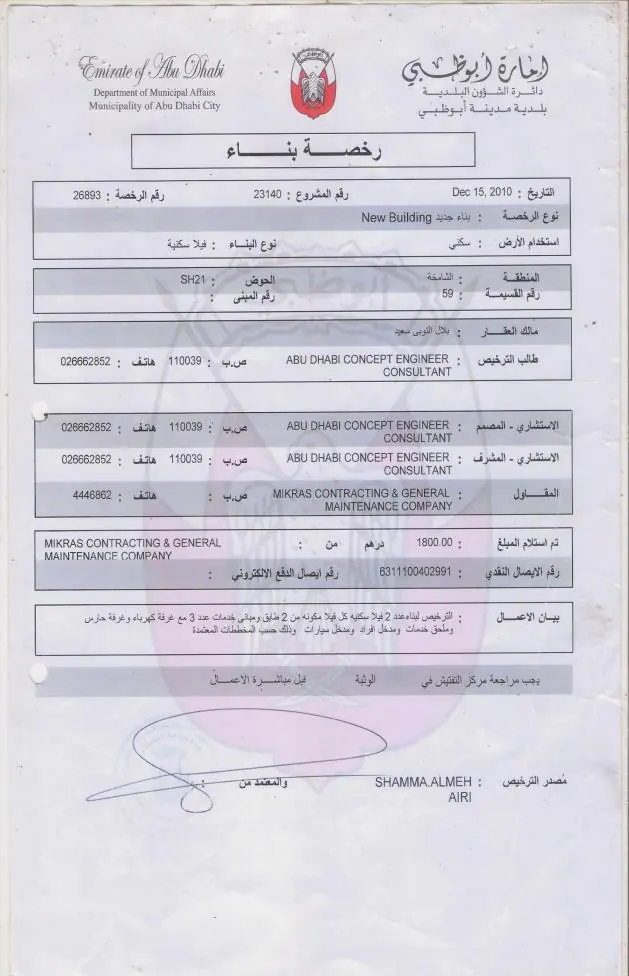 Emirate of Abu Dhabi
Department of Municipal Affairs
Municipality of Abu Dhabi City
إمارة أبوظبي
دائرة الشؤون البلدية
بلدية مدينة أبوظبي
رخصة بناء
التاريخ : Dec 15, 2010 رقم المشروع : 23140 رقم الرخصة : 26893
نوع الرخصة : بناء جديد New Building
استخدام الأرض : سكني نوع البناء : فيلا سكنية
المنطقة : الشامخة الحوض : SH21
رقم القسيمة : 59 رقم المبنى :
مالك العقار : بلال النوبى سعيد
طالب الترخيص : ABU DHABI CONCEPT ENGINEER ص.ب : 110039 هاتف : 026662852
CONSULTANT
الاستشاري - المصمم : ABU DHABI CONCEPT ENGINEER ص.ب : 110039 هاتف : 026662852
CONSULTANT
الاستشاري - المشرف : ABU DHABI CONCEPT ENGINEER ص.ب : 110039 هاتف : 026662852
CONSULTANT
المقاول : MIKRAS CONTRACTING & GENERAL ص.ب : هاتف : 4446862
MAINTENANCE COMPANY
تم استلام المبلغ : 1800.00 درهم من : MIKRAS CONTRACTING & GENERAL
MAINTENANCE COMPANY
رقم الايصال النقدي : 6311100402991 رقم ايصال الدفع الالكتروني :
بيان الاعمال : الترخيص لبناءعدد 2 فيلا سكنيه كل فيلا مكونه من 2 طابق ومبانى خدمات عدد 3 مع غرفة كهرباء وغرفة حارس
وملحق خدمات ومدخل افراد ومدخل سيارات وذلك حسب المخططات المعتمدة
يجب مراجعة مركز التفتيش في الوثبة قبل مباشرة الاعمال
مُصدر الترخيص : SHAMMA.ALMEH والمعتمد من :
AIRI